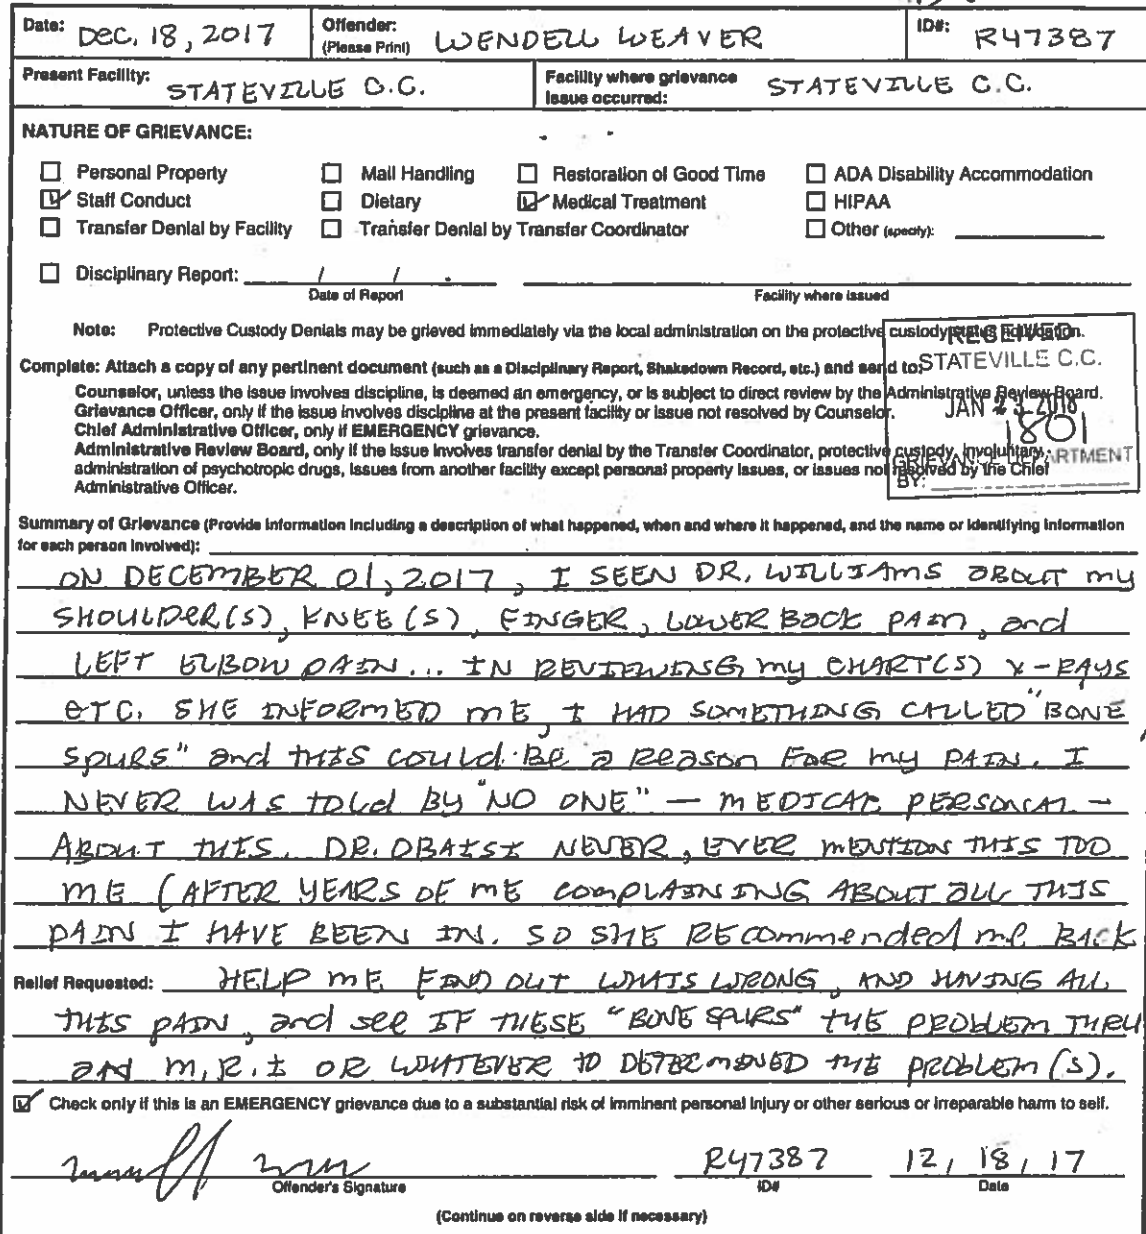 Date: DEC, 18, 2017 Offender: (Please Print) WENDELL WEAVER ID#: R47387
Present Facility: STATEVILLE C.C. Facility where grievance issue occurred: STATEVILLE C.C.
NATURE OF GRIEVANCE:
Personal Property Mail Handling Restoration of Good Time ADA Disability Accommodation
Staff Conduct Dietary Medical Treatment HIPAA
Transfer Denial by Facility Transfer Denial by Transfer Coordinator Other (specify):
Disciplinary Report: / /
Date of Report Facility where issued
Note: Protective Custody Denials may be grieved immediately via the local administration on the protective custody status notification.
Complete: Attach a copy of any pertinent document (such as a Disciplinary Report, Shakedown Record, etc.) and send to:
Counselor, unless the issue involves discipline, is deemed an emergency, or is subject to direct review by the Administrative Review Board.
Grievance Officer, only if the issue involves discipline at the present facility or issue not resolved by Counselor.
Chief Administrative Officer, only if EMERGENCY grievance.
Administrative Review Board, only if the issue involves transfer denial by the Transfer Coordinator, protective custody, involuntary
administration of psychotropic drugs, issues from another facility except personal property issues, or issues not resolved by the Chief
Administrative Officer.
RECEIVED
STATEVILLE C.C.
JAN 2018
1801
GRIEVANCE DEPARTMENT
BY:
Summary of Grievance (Provide information including a description of what happened, when and where it happened, and the name or identifying information
for each person involved):
ON DECEMBER 01, 2017, I SEEN DR. WILLIAMS ABOUT my
SHOULDER(S), KNEE(S), FINGER, LOWER BACK PAIN, and
LEFT ELBOW PAIN... IN REVIEWING my CHART(S) X-RAYS
ETC. SHE INFORMED ME, I HAD SOMETHING CALLED "BONE
SPURS" and THIS COULD BE a REASON FOR my PAIN. I
NEVER WAS TOLD BY "NO ONE" — MEDICAL PERSONAL —
ABOUT THIS. DR. OBAISI NEVER, EVER MENTION THIS TOO
ME (AFTER YEARS OF ME COMPLAINING ABOUT ALL THIS
PAIN I HAVE BEEN IN. SO SHE RECommended me BACK
Relief Requested: HELP ME FIND OUT WHATS WRONG, AND HAVING ALL
THIS PAIN, and see IF THESE "BONE SPURS" THE PROBLEM THRU
and M.R.I OR WHATEVER TO DETERMINED THE PROBLEM(S).
Check only if this is an EMERGENCY grievance due to a substantial risk of imminent personal injury or other serious or irreparable harm to self.
R47387 12, 18, 17
Offender's Signature ID# Date
(Continue on reverse side if necessary)